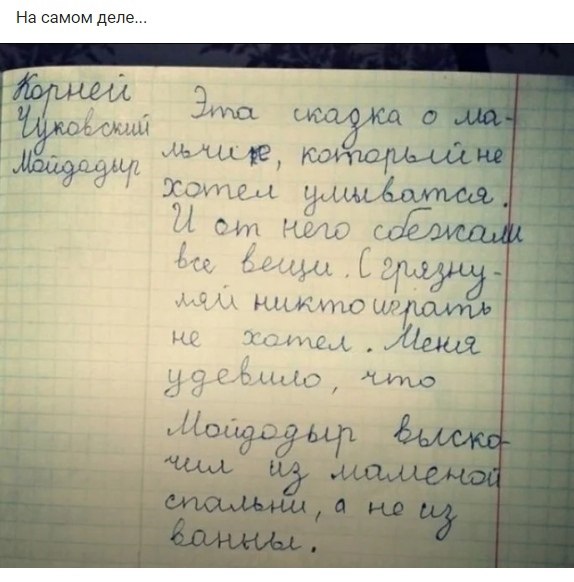 На самом деле...
Корней
Чуковский
Мойдодыр
Эта скадка о ма-
льчике, который не
хотел умыватся.
И от него сбежали
все вещи. С грязну-
лей никто играть
не хотел. Меня
удевило, что
Мойдодыр выско-
чил из маменой
спальни, а не из
ванны.